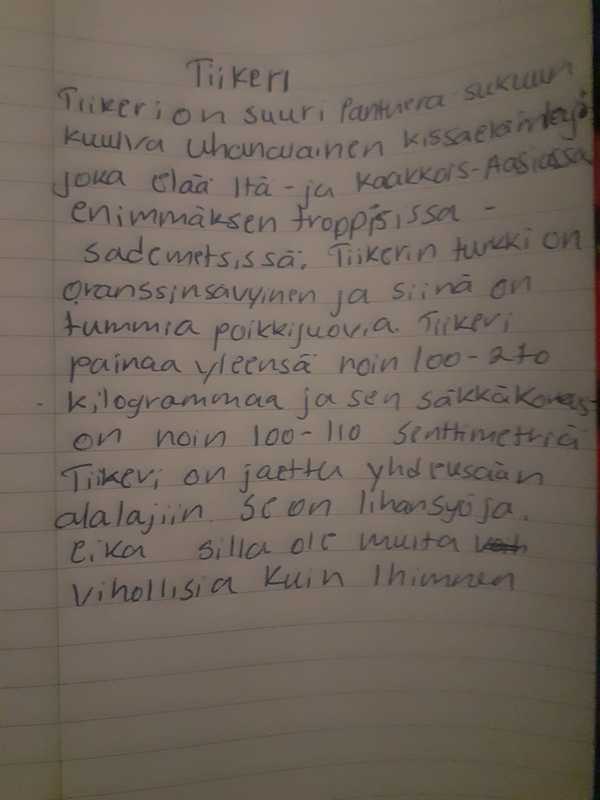 Tiikeri
Tiikeri on suuri Panthera sukuun
kuulva uhanalainen kissaeläinlaji
joka elää Itä-ja Kaakkois-Aasiassa
enimmäksen trooppisissa -
sademetsissä. Tiikerin turkki on
oranssinsävyinen ja siinä on
tummia poikkijuovia. Tiikeri
painaa yleensä noin 100-270
kilogrammaa ja sen säkkäkorkeus
on noin 100-110 senttimetriä
Tiikeri on jaettu yhdeksään
alalajiin. Se on lihansyöjä.
eika silla ole muita
vihollisia kuin Ihminen